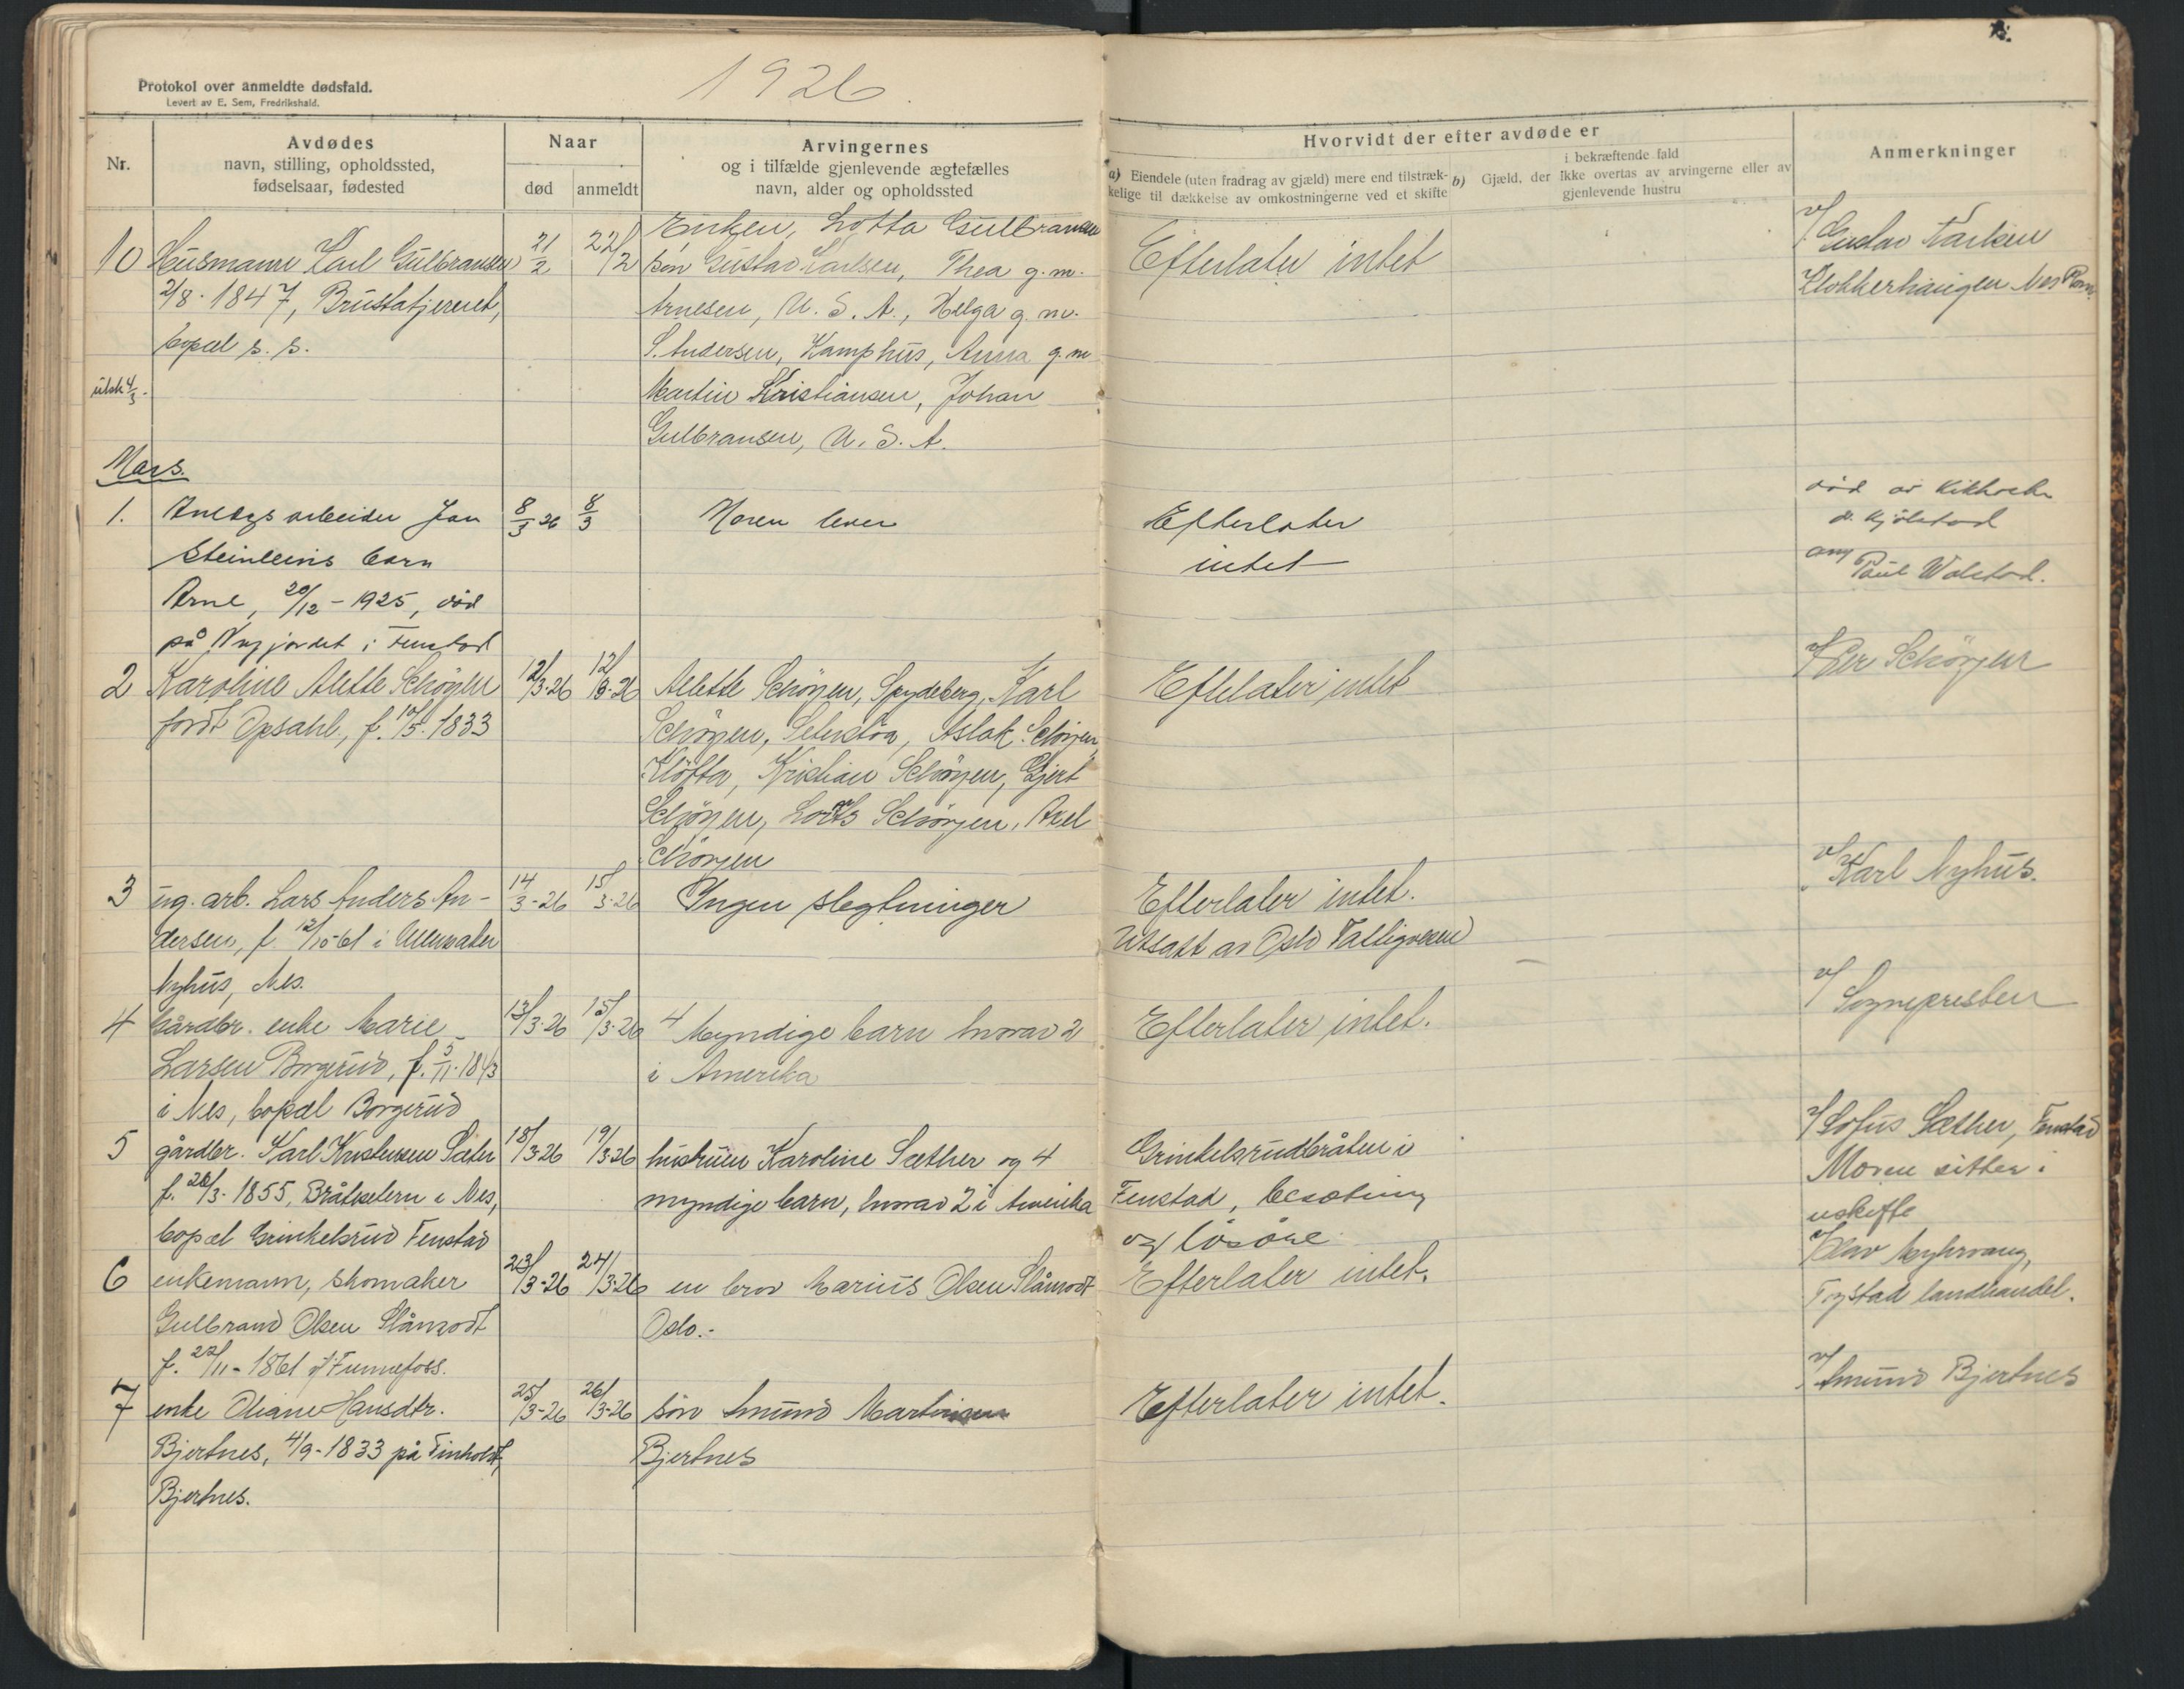 Protokol over anmeldte dødsfald.
Levert av E. Sem, Fredrikshald.
1926.
Nr.
Avdødes
navn, stilling, opholdssted,
fødselsaar, fødested
Naar
død
anmeldt
Arvingernes
og i tilfælde gjenlevende ægtefælles
navn, alder og opholdssted
Hvorvidt der efter avdøde er
a) Eiendele (uten fradrag av gjæld) mere end tilstræk-
kelige til dækkelse av omkostningerne ved et skifte
b) Gjæld, der i bekræftende fald
ikke overtas av arvingerne eller av
gjenlevende hustru
Anmerkninger
10
Husmann Karl Gulbransen
2/8. 1847, Brustatjernet,
bopæl s. s.
utsk 4/3.
21/2
22/2
Enken, Lotta Gulbransen
søn Gustav Karlsen, Thea g. m.
Arnesen, U. S. A., Helga g. m.
S. Andersen, Kamphus, Anna g. m
Martin Kristiansen, Johan
Gulbransen, U. S. A.
Efterlater intet
v/ Gustav Karlsen
Klokkerhaugen Nes Rom.
Mars.
1.
Anlegsarbeider Jan
Steinleins barn
Arne, 20/12 - 1925, død
på Nyjordet i Fenstad
8/3 26
8/3
Moren lever
Efterlater
intet
død av kikhoste
d. Kjölstad
anm Paul Wolstad.
2
Karoline Alette Schøyen
født Opsahl, f. 10/5. 1833
12/3-26
12/3-26
Alette Schöyen, Spydeberg, Karl
Schöyen, Aslak Schöyen,
Klöfta, Kristian Schöyen, Gjert
Schöyen, Schöyen, Axel
Schöyen
Eftelater intet
v/ Per Schöyen
3
ug. arb. Lars Anders An-
dersen, f. 12/10-61 i Ullensaker
Nyhus, Nes.
14/3-26
15/3-26
Ingen slegtninger
Efterlater intet.
Utsatt av Oslo Fattigvesen
v/ Karl Nyhus.
4
Gårdbr. enke Marie
Larsen Borgerud, f. 5/11-1843
i Nes, bopæl Borgerud
13/3-26
15/3-26
4 Myndige barn hvorav 2
i Amerika
Efterlater intet.
v/ Sognepresten
5
gårdbr. Karl Kristensen Sæter
f. 28/3. 1855, i Nes,
bopæl Grinkelsrud Fenstad
18/3-26
19/3-26
hustruen Karoline Sæther og 4
myndige barn, hvorav 2 i Amerika
Grinkelsrudbråten i
Fenstad, besætning
og lösöre
v/ Lofus Sæther, Fenstad
Moren sitter i
uskifte
6
enkemann, skomaker
Gulbrand Olsen Slåmodt
f. 22/11-1861 v/ Funnefoss.
23/3-26
24/3-26
en bror Marius Olsen Slåmodt
Oslo.-
Efterlater intet.
v/ Olav Myhrvang,
Frystad landhandel.
7
enke Oliane Hansdtr.
Bjertnes, 4/9-1833 på Finholt,
Bjertnes.
25/3-26
26/3-26
sön Amund Martinsen
Bjertnes
Efterlater intet.
v/ Amund Bjertnes